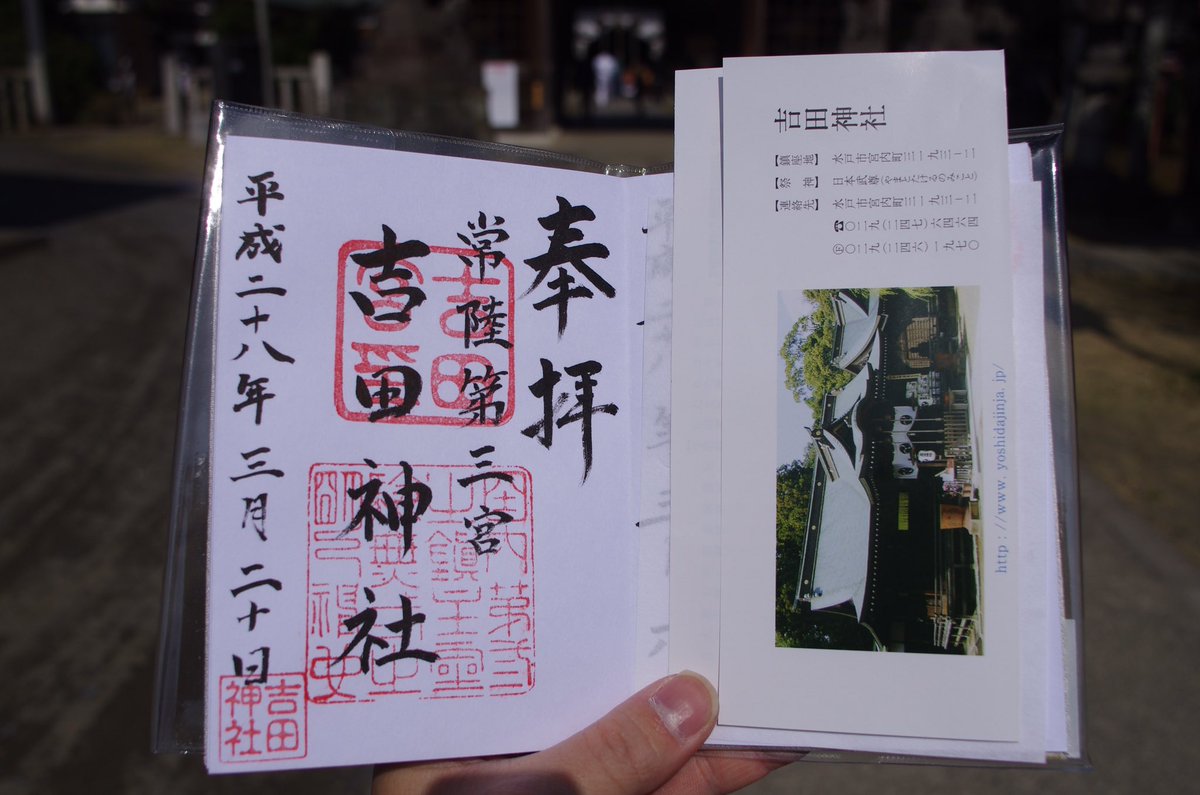 奉拝
常陸第三宮
吉田神社
平成二十八年三月二十日
吉田
神社
吉田神社
【鎮座地】 水戸市宮内町三一九三-二
【祭 神】 日本武尊(やまとたけるのみこと)
【連絡先】 水戸市宮内町三一九三-二
☎〇二九(二四七)六四六四
㋫〇二九(二四六)一九七〇
http://www.yoshidajinja.jp/